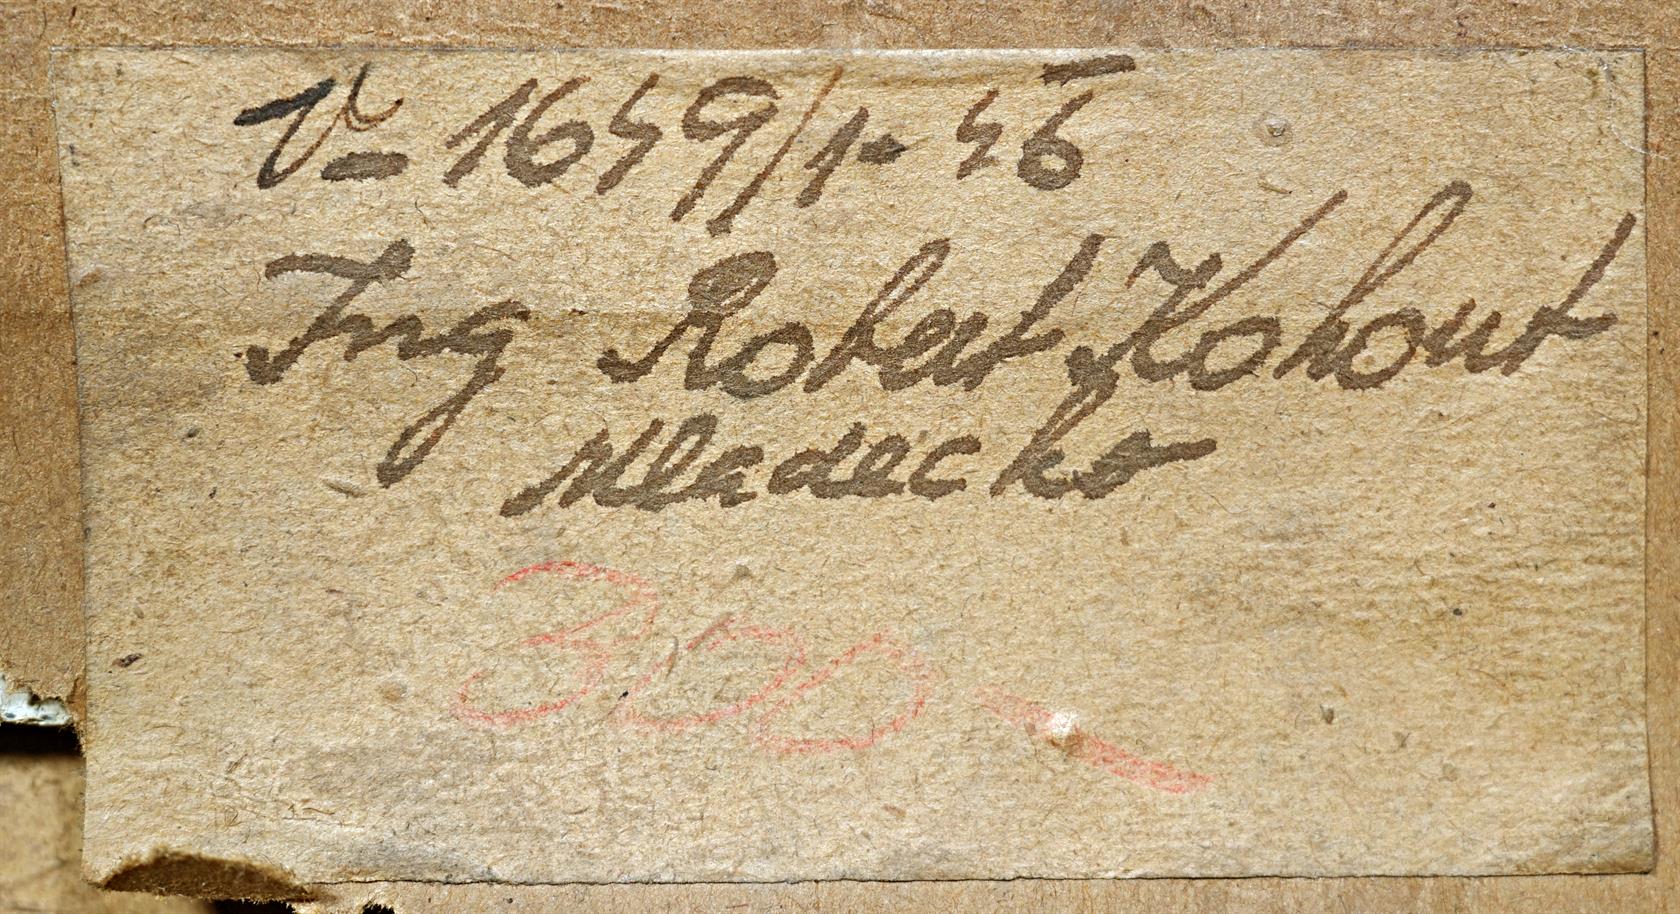 V-1659/1-56
Ing Robert Kohout
Mladecko
300 -